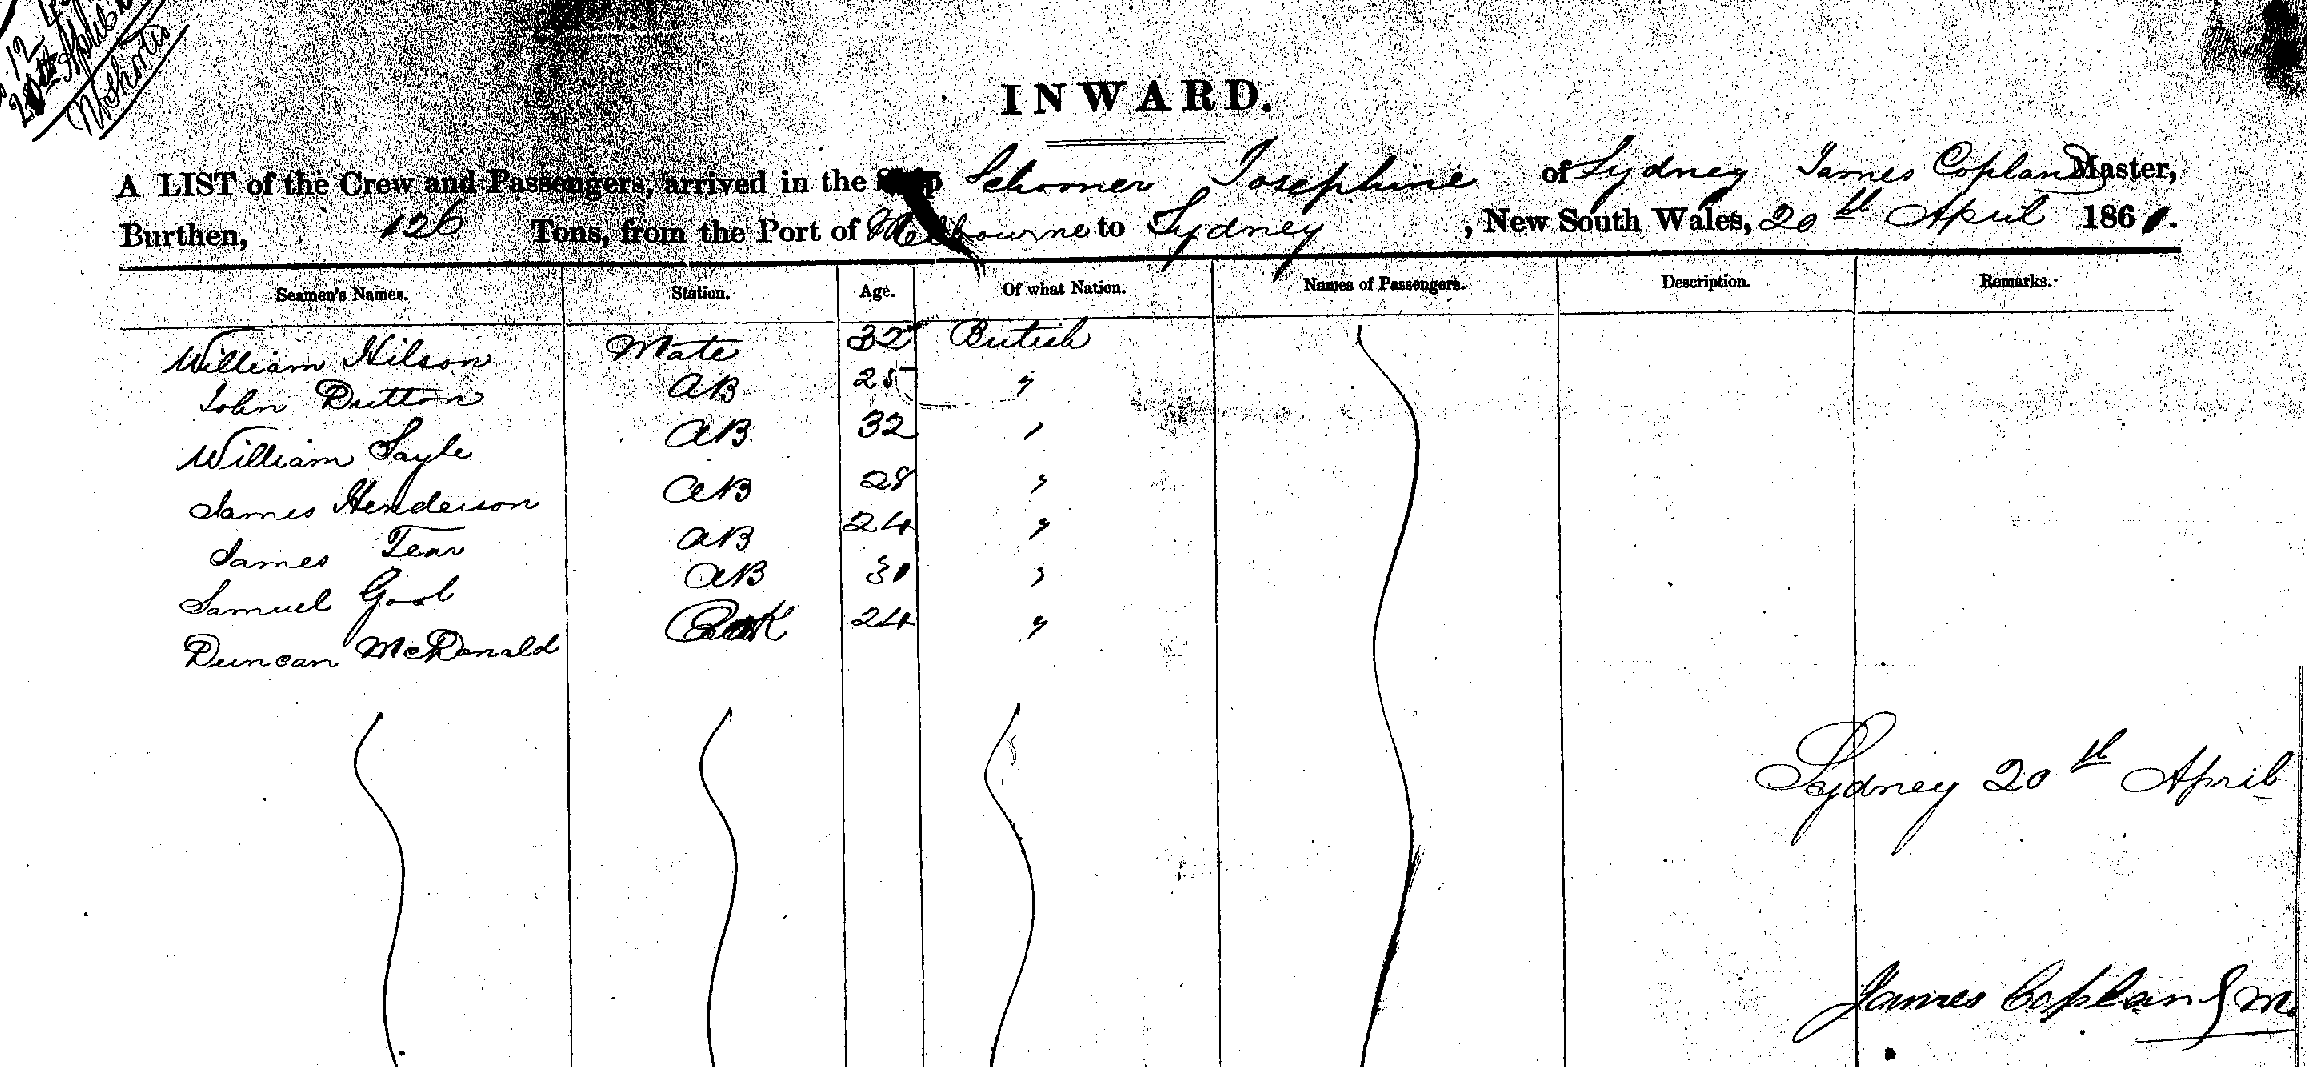 12
20th April
INWARD.
A LIST of the Crew and Passengers, arrived in the Ship Schooner Josephine of Sydney James Copland Master,
Burthen, 126 Tons, from the Port of Melbourne to Sydney, New South Wales, 20th April 1861.
Seamen's Names. Station. Age. Of what Nation. Names of Passengers. Description. Remarks.
William Hilson Mate 32 British
John Dutton AB 25 "
William Sayle AB 32 "
James Henderson AB 28 "
James Tear AB 24 "
Samuel AB 30 "
Duncan McDonald Cook 24 "
Sydney 20th April
James Copland